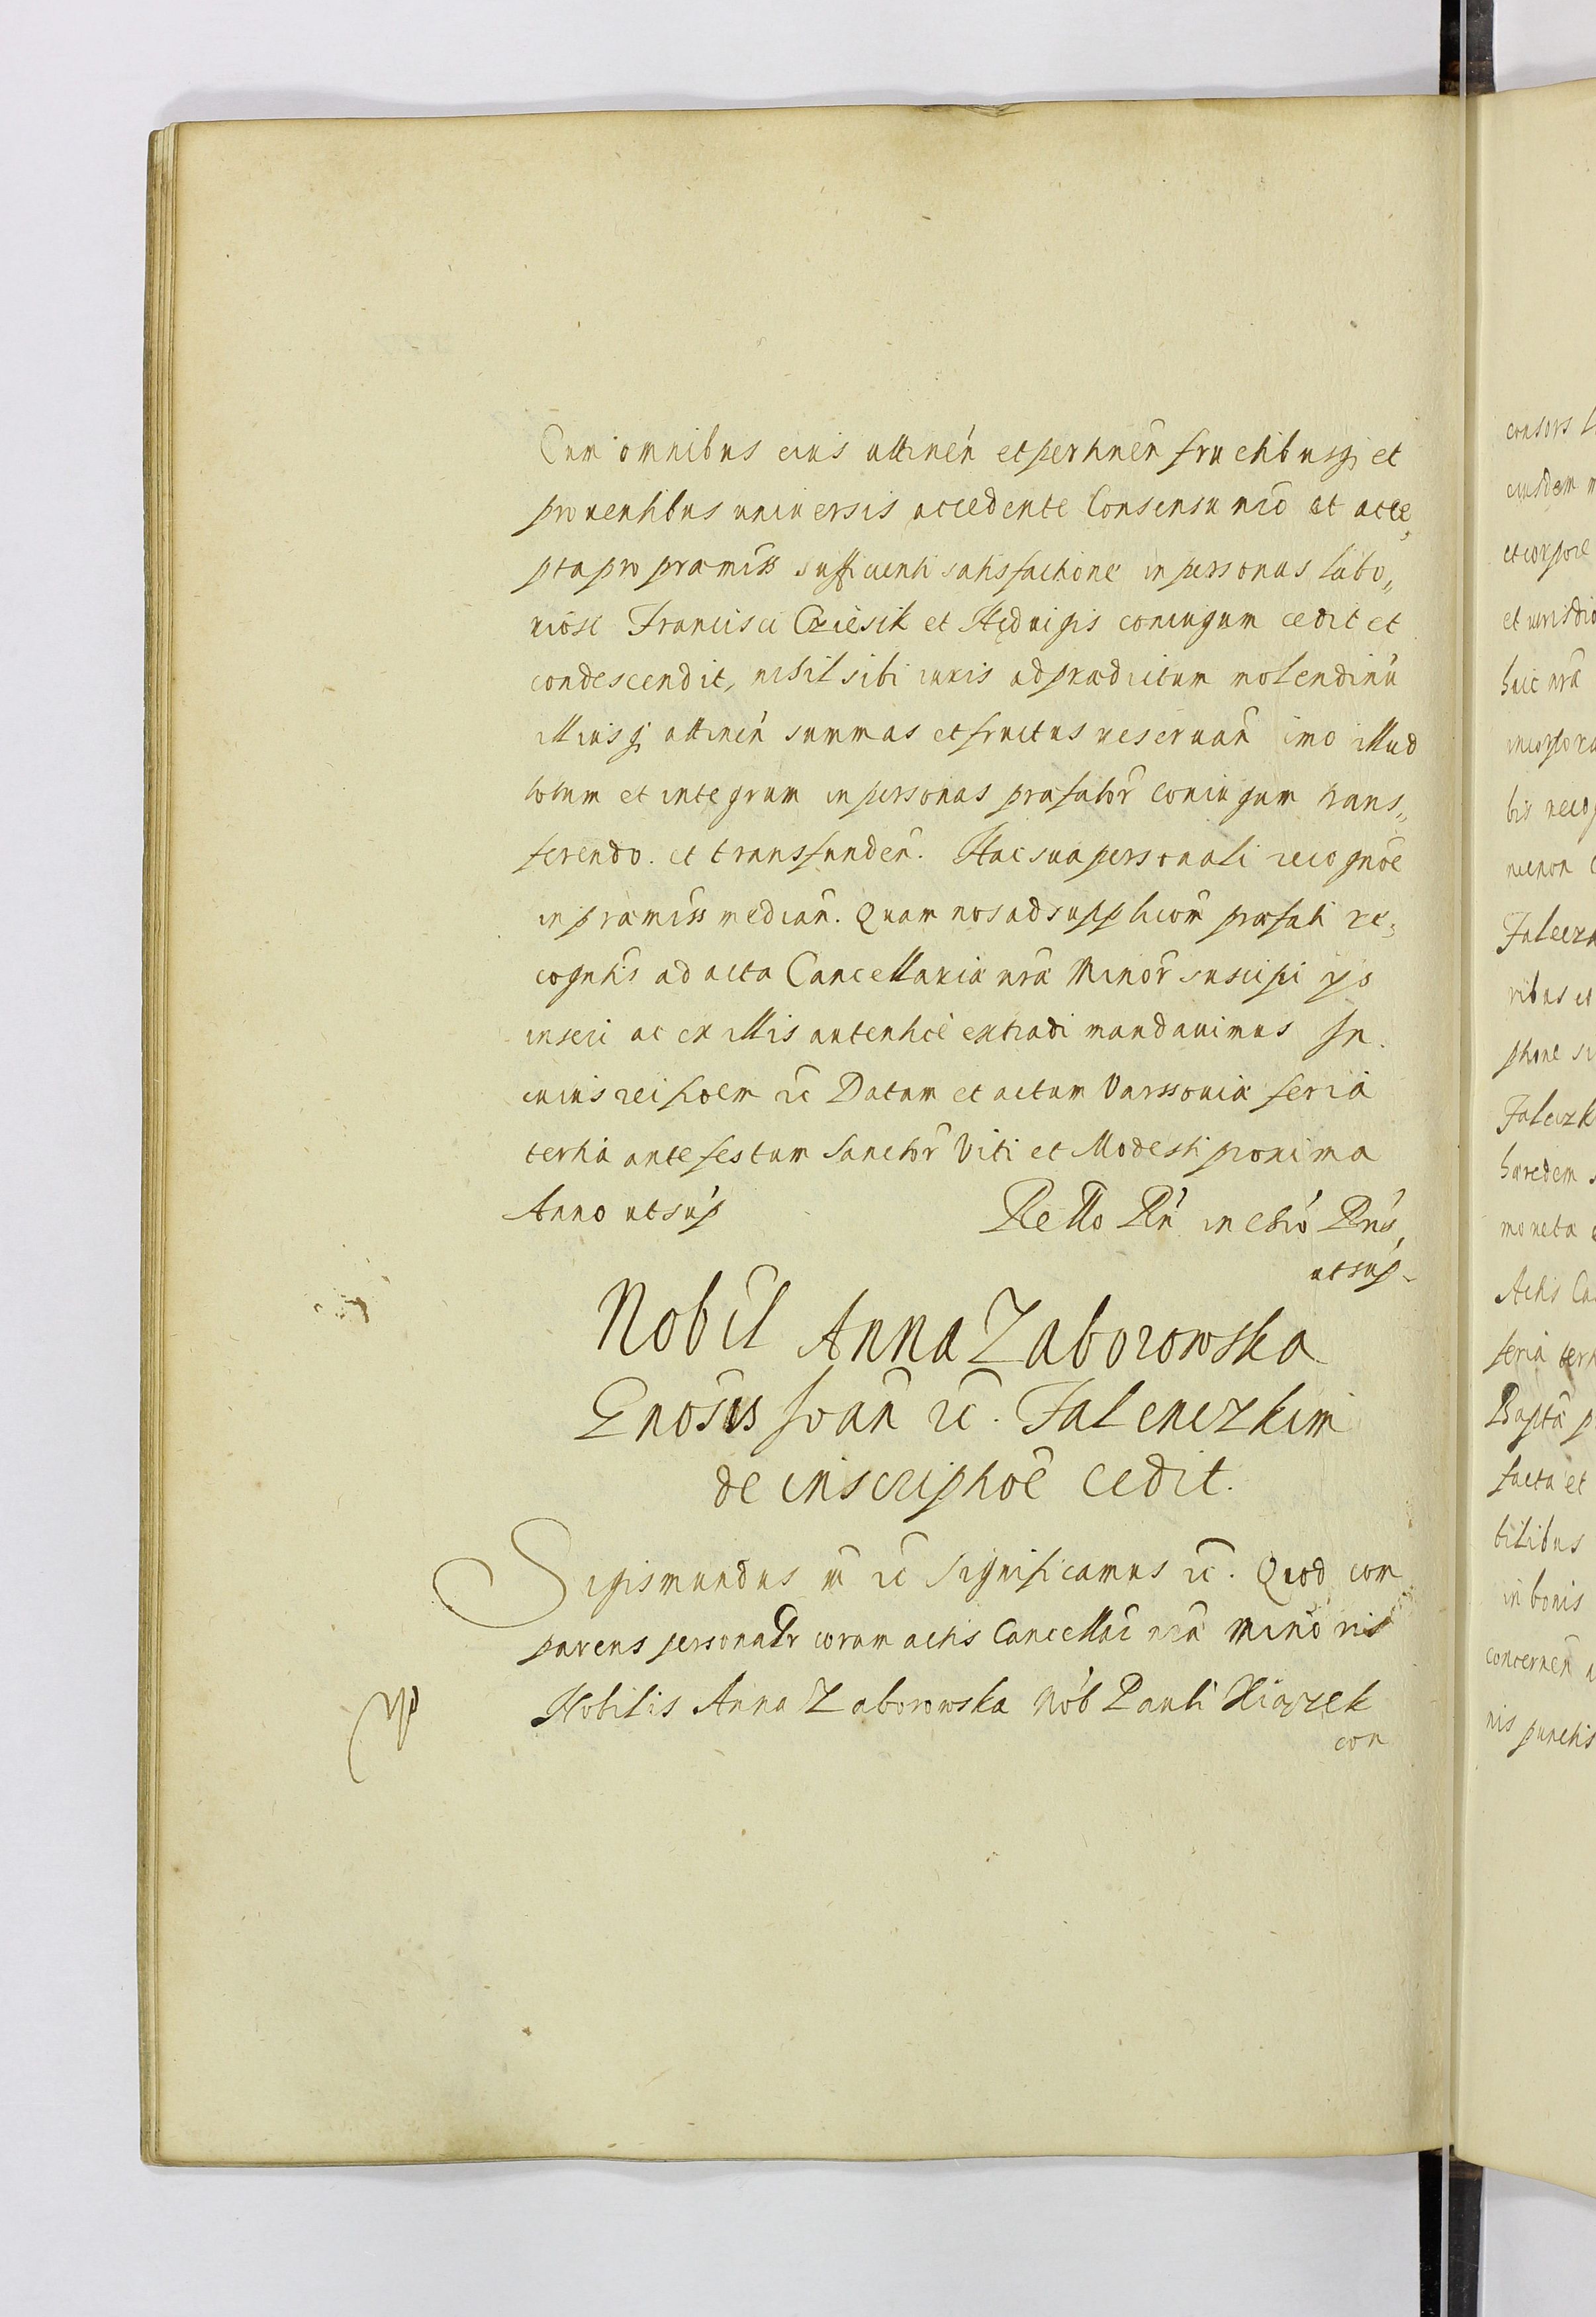 Cum omnibus eius attinen̄ et pertinen̄ fructibusq; et
prouentibus uniuersis accedente Consensu nr̄o et acce„
pta pro præmiss̄ sufficienti satisfactione in personas labo„
rios̄ Francisci Cziesik et Hęduigis coniugum cedit et
condescendit, nihil sibi iuris ad prædictum molendinū
illiusq; attinen̄ summas et fructus reseruan̄ imo illud
totum et integrum in personas præfator̄ coniugum trans„
ferendo. et transfunden̄. Hac sua personali recogn̄oe
in præmiss̄ median̄. Quam nos ad supplicōm præfati re„
cogn̄tis ad acta Cancellariæ nr̄æ Minor̄ suscipi
inseri ac ex illis autenticē extradi mandauimus In
cuius rei fidem &c̄ Datum et actum Varssouiæ feria
tertia ante festum Sanctor̄ Viti et Modesti proxima
Anno ut sup̄
Rello Rn̄ in Chr̄o Prīs,
ut sup̄
Nobil̄ Anna Zaborowska
Gn̄osis Ioan̄ &c̄. Falenczkim
de inscriptiōe cedit.
Sigismundus III &c̄ Significamus &c̄. Quod com
parens personalr̄ coram actis Cancellar̄ nr̄æ Minoris
Nobilis Anna Zaborowska Nob̄ Pauli Xiązek
con
consors
eiusdem
et corpore
et iurisdic
huic nr̄æ
incorpora
bis recog
necnon
Falecz
ribus et
Faleczk
hæredem
moneta
Actis Ca
feria ter
Baptæ p
facta et
bilibus
in bonis
concernen̄
nis punctis